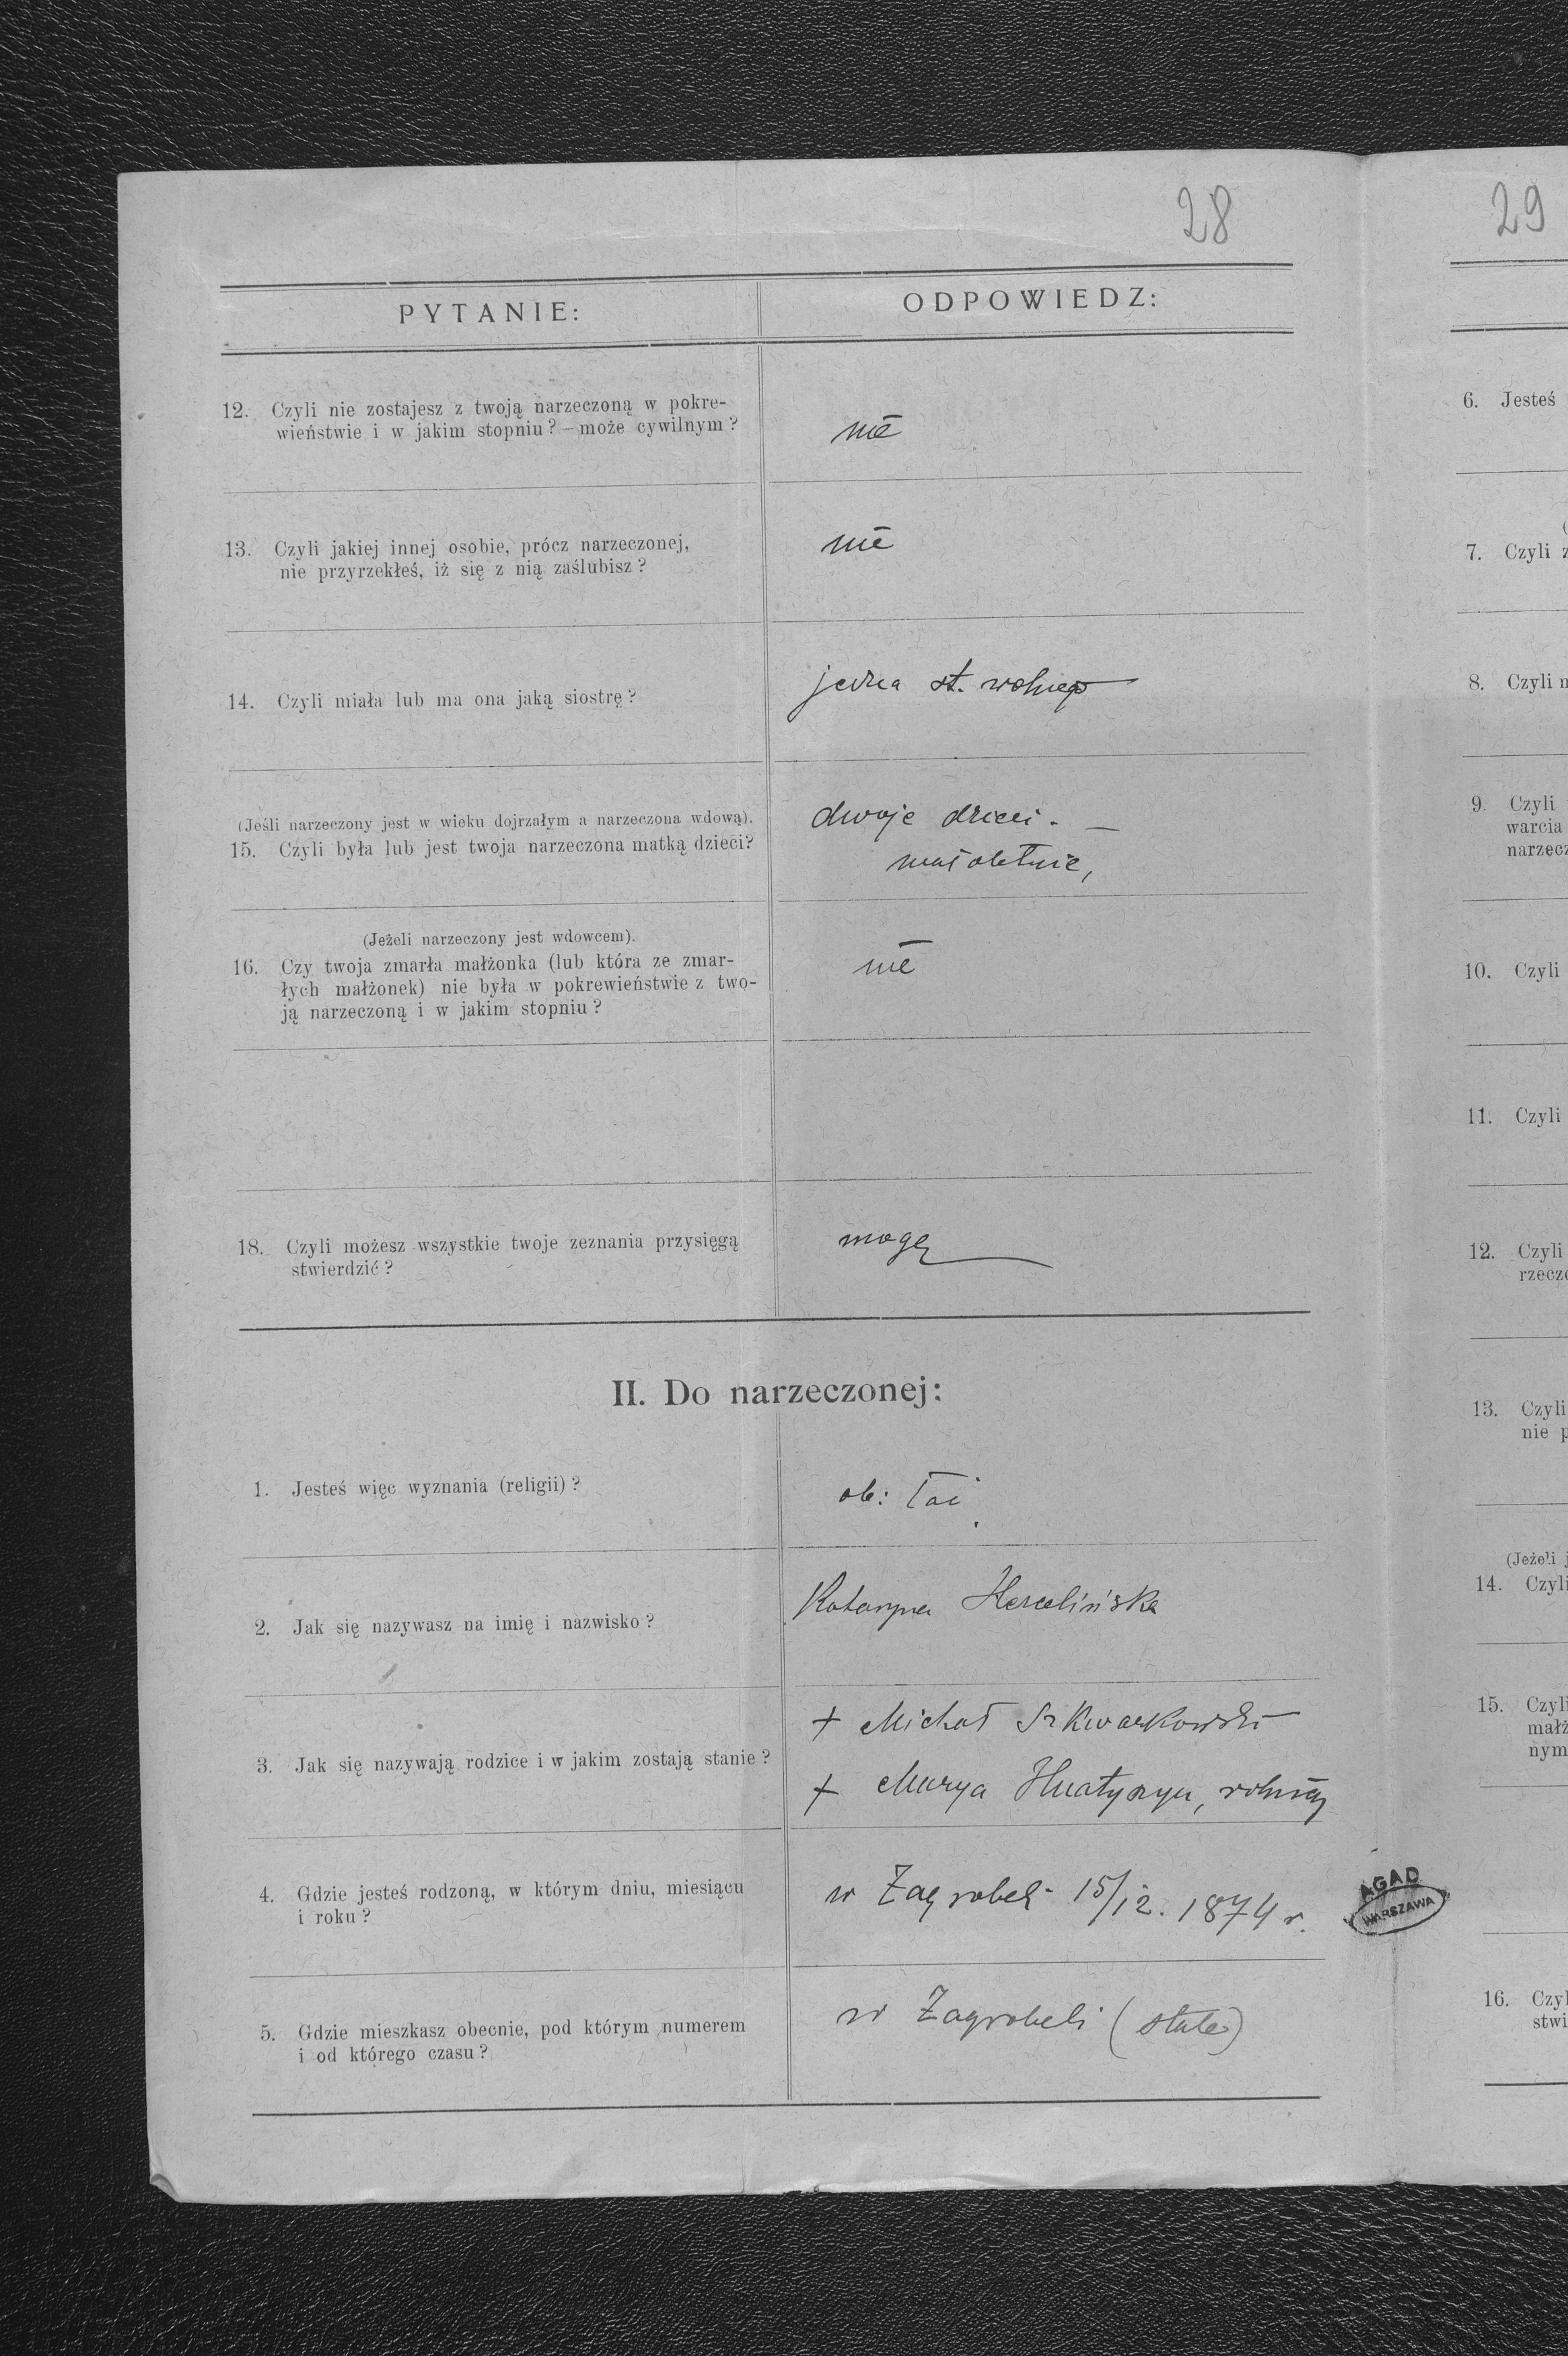 28
29
PYTANIE:
ODPOWIEDZ:
12. Czyli nie zostajesz z twoją narzeczoną w pokre-
wieństwie i w jakim stopniu? – może cywilnym?
nie
13. Czyli jakiej innej osobie, prócz narzeczonej,
nie przyrzekłeś, iż się z nią zaślubisz?
nie
14. Czyli miała lub ma ona jaką siostrę?
jedna st. wolnego
(Jeśli narzeczony jest w wieku dojrzałym a narzeczona wdową).
15. Czyli była lub jest twoja narzeczona matką dzieci?
dwoje dzieci. —
małoletnie,
(Jeżeli narzeczony jest wdowcem).
16. Czy twoja zmarła małżonka (lub która ze zmar-
łych małżonek) nie była w pokrewieństwie z two-
ją narzeczoną i w jakim stopniu?
nie
18. Czyli możesz wszystkie twoje zeznania przysięgą
stwierdzić?
mogę
II. Do narzeczonej:
1. Jesteś więc wyznania (religii)?
ob: łać
2. Jak się nazywasz na imię i nazwisko?
Katarzyna
3. Jak się nazywają rodzice i w jakim zostają stanie?
+ Michał Szkwarkowski
+ Marya
4. Gdzie jesteś rodzoną, w którym dniu, miesiącu
i roku?
w Zagrobeli 15/12. 1874 r.
5. Gdzie mieszkasz obecnie, pod którym numerem
i od którego czasu?
w Zagrobeli (stale)
6. Jesteś
7. Czyli z
8. Czyli m
9. Czyli
warcia
narzecz
10. Czyli
11. Czyli
12. Czyli
rzeczo
13. Czyli
nie p
(Jeżeli j
14. Czyli
15. Czyli
małż
nym
AGAD
WARSZAWA
16. Czyl
stwi